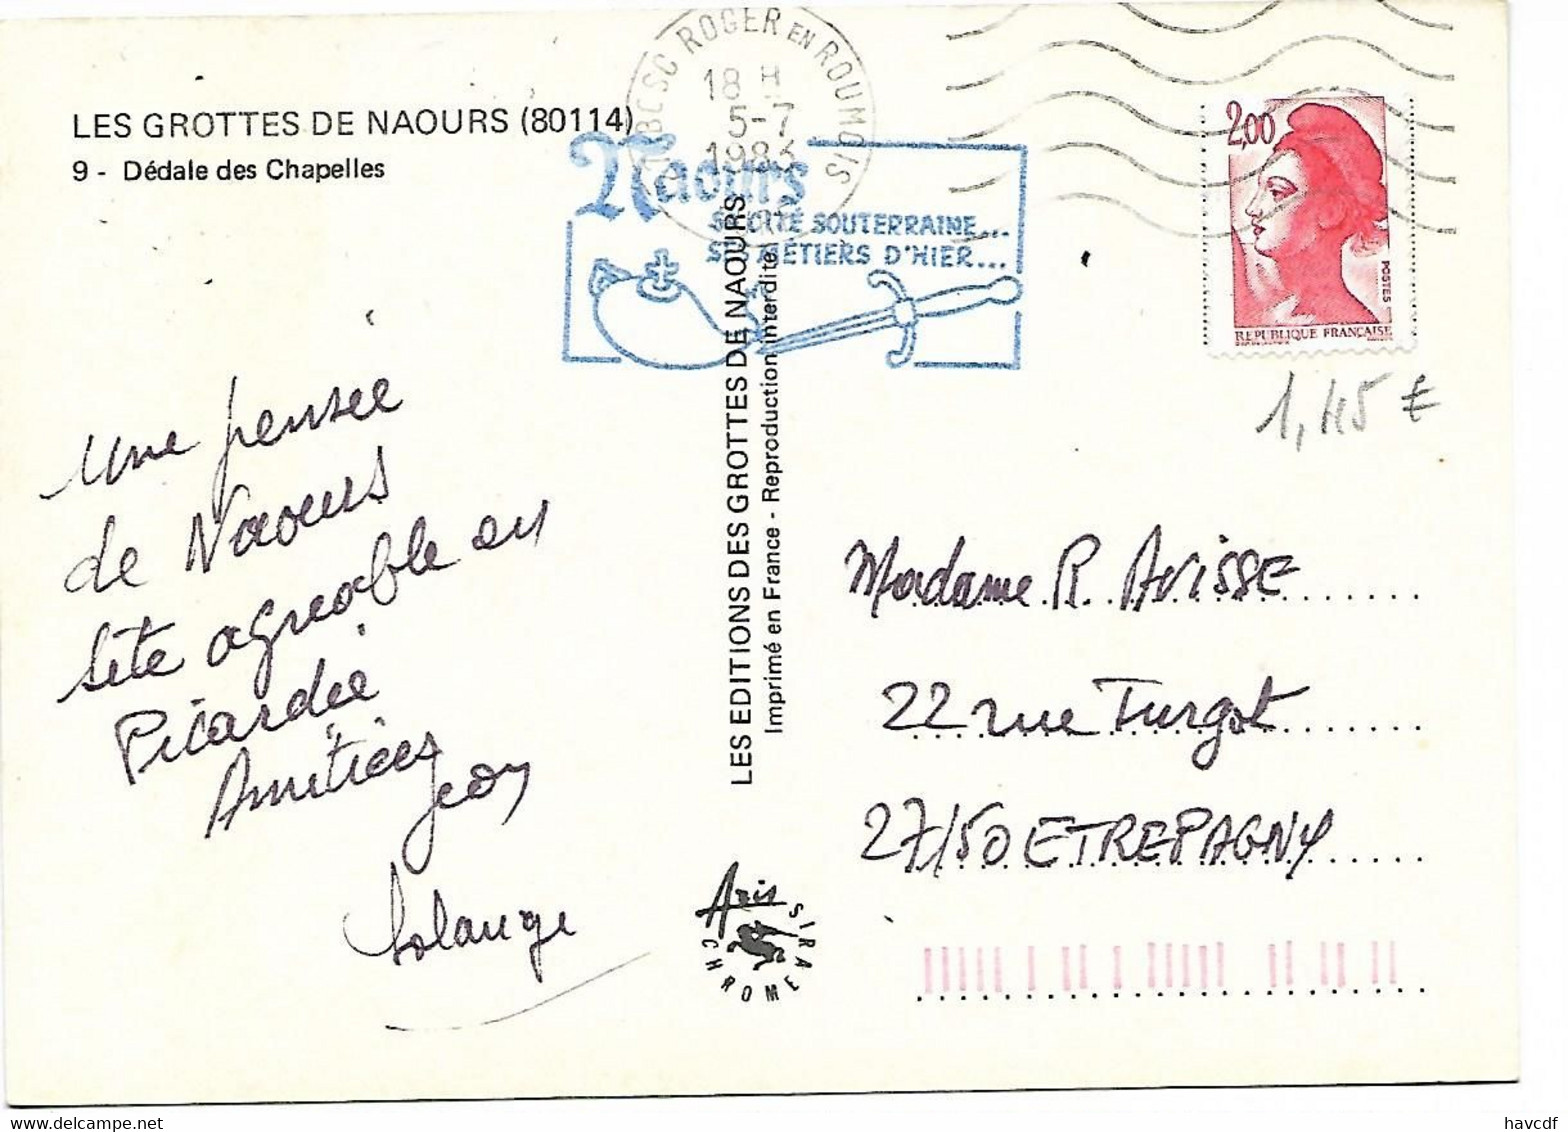 LES GROTTES DE NAOURS (80114)
9 - Dédale des Chapelles
ROGER EN ROUMOIS
18 H
5-7
1983
Naours
SA CITÉ SOUTERRAINE...
SES MÉTIERS D'HIER...
2,00
POSTES
REPUBLIQUE FRANÇAISE
1,45 €
une pensée
de Naours
site agréable en
Picardie
Amitiés
Jean
Solange
LES EDITIONS DES GROTTES DE NAOURS
Imprimé en France - Reproduction interdite
Madame R. AVISSE
22 rue Turgot
27150 ETREPAGNY
Aris
CHROME
havcdf